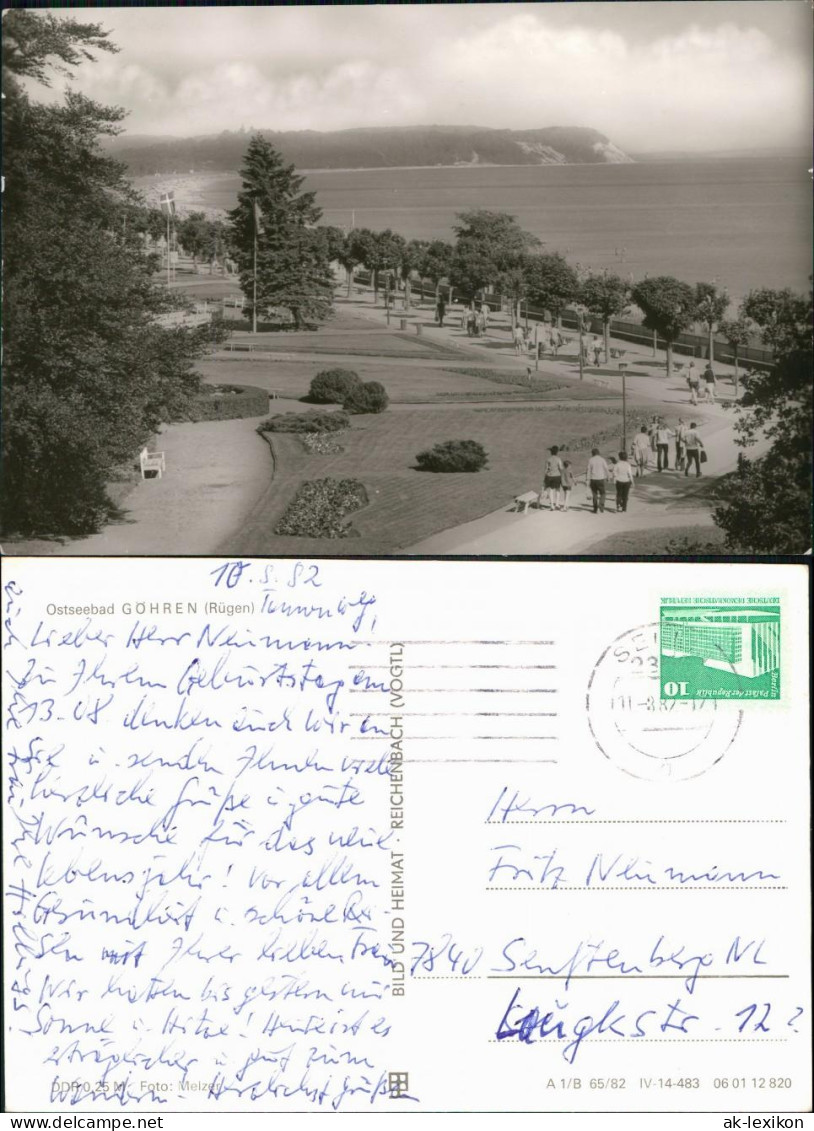 10.8.82
Ostseebad GÖHREN (Rügen)
Lieber Herr Neumann!
Zu Ihrem Geburtstag am
13.08. denken auch wir an
Sie u. senden Ihnen viele
herzliche Grüße u. gute
Wünsche für das neue
Lebensjahr! Vor allem
Gesundheit u. schöne Rei-
sen mit Ihrer lieben Frau
Wir hatten bis gestern nur
Sonne u. Hitze! Heute ist es
erträglicher u. gut zum
Wandern. Herzlichst grüßen
DDR 0,25 M Foto: Melzer
BILD UND HEIMAT · REICHENBACH (VOGTL)
DEUTSCHE DEMOKRATISCHE REPUBLIK
Berlin
Palast der Republik
10
Herrn
Fritz Neumann
7840 Senftenberg NL
12
A 1/B 65/82 IV-14-483 06 01 12 820
ak-lexikon
DELCAMPE.NET